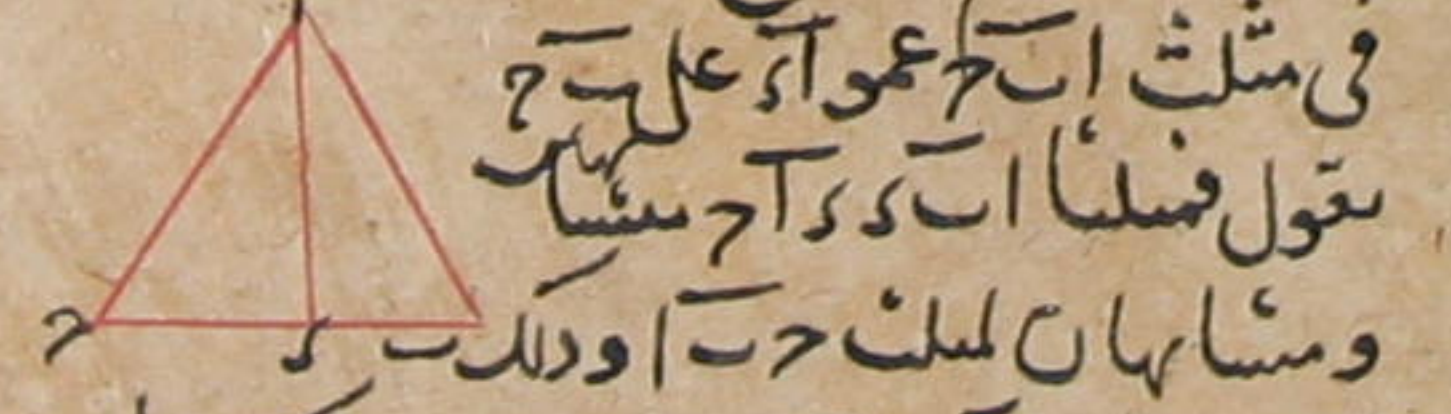 في مثلث ا ب ح عمو ا د على ب ح
نقول فمثلثا ا ب د د ا ح متشابهان
ومتشابهان لمثلث ح ب ا وذلك
ا
ح د ب